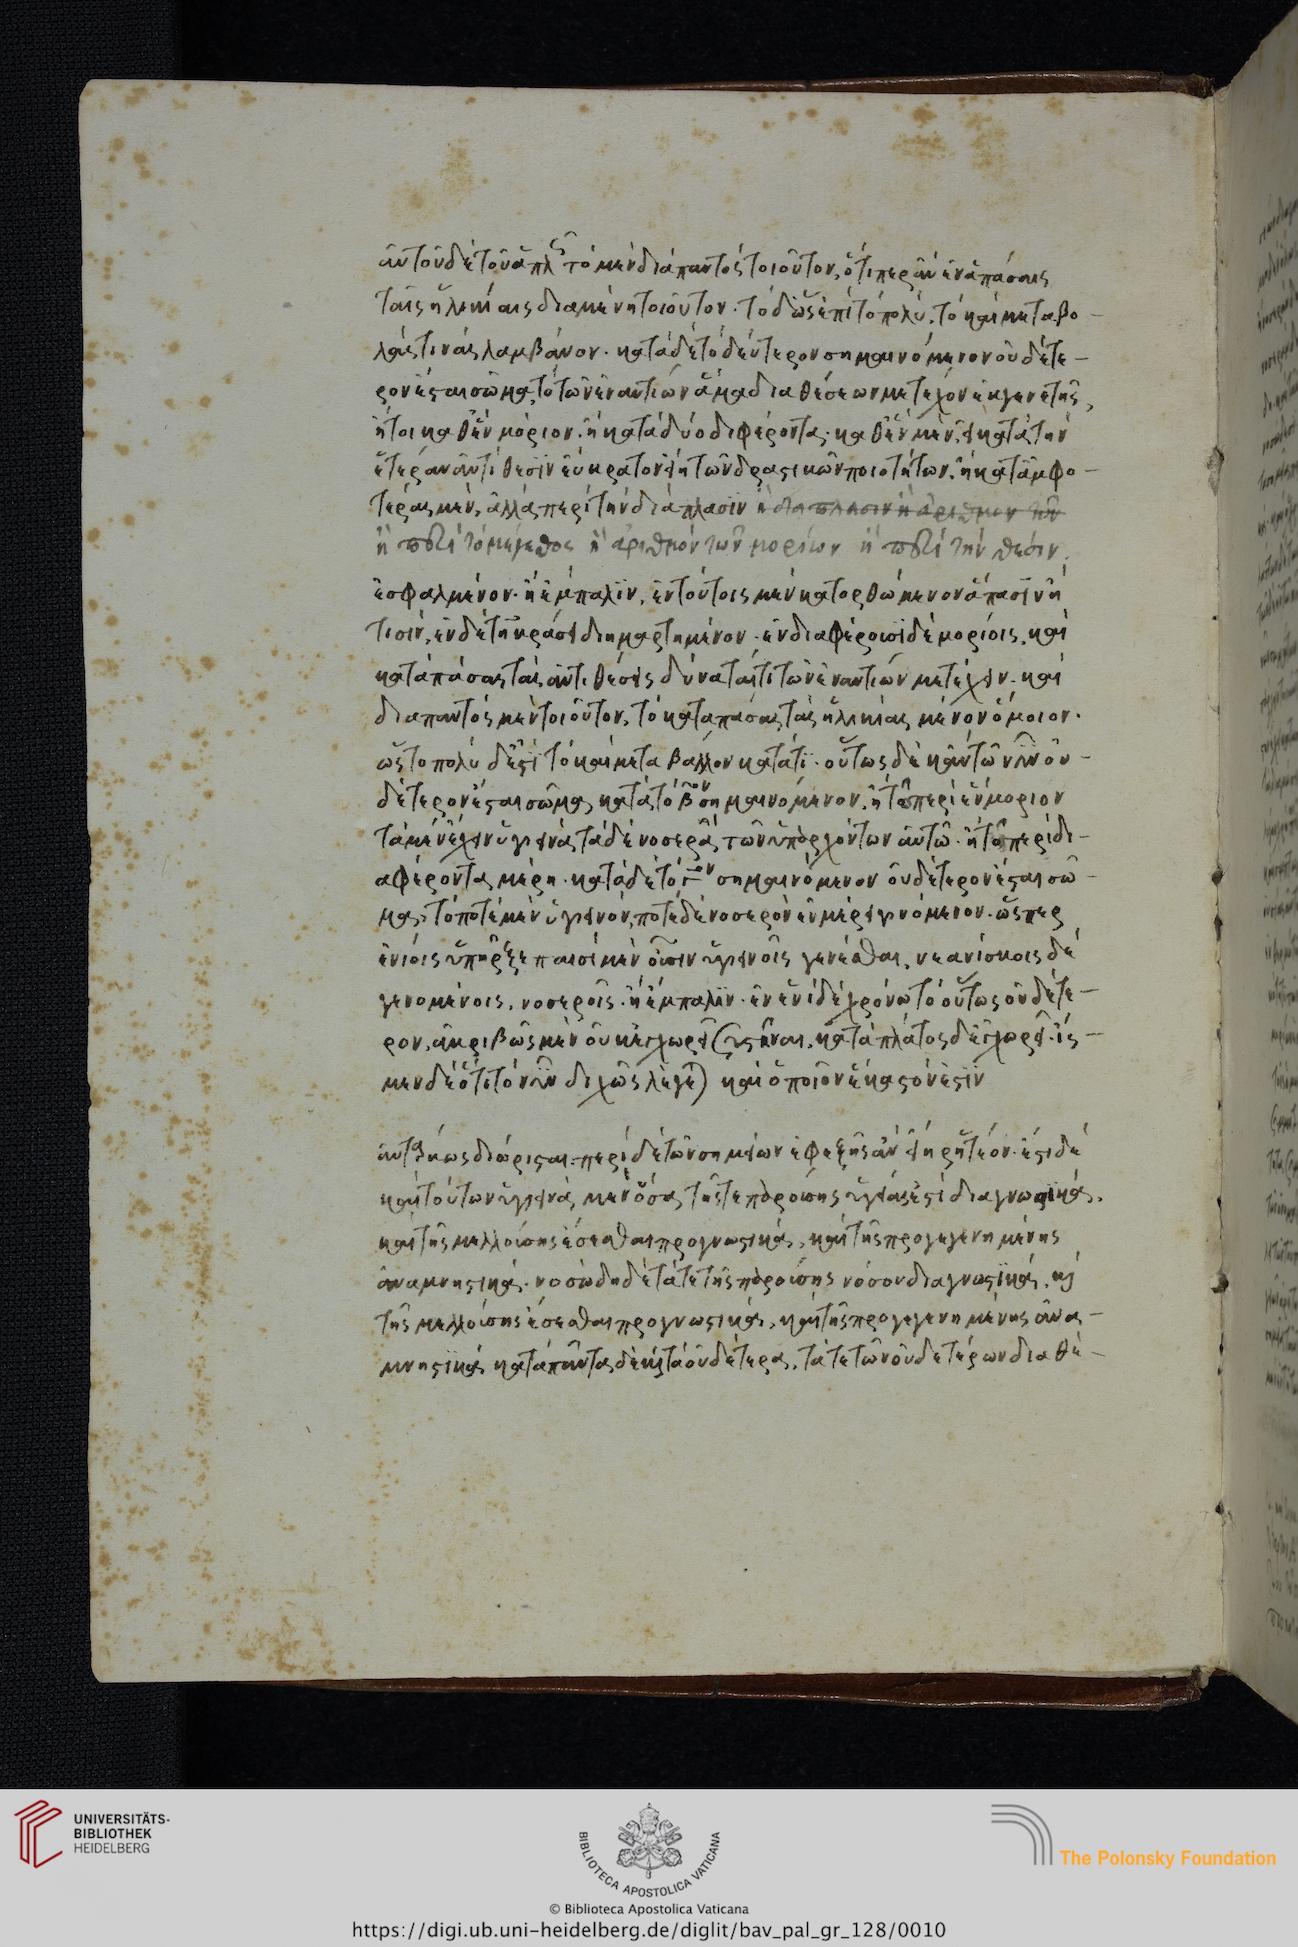 αὐτοῦ δὲ τοῦ ἁπλῶς τὸ μὲν διαπαντὸς τοιοῦτον, ὅτιπερ ἂν ἐν ἁπάσαις
ταῖς ἡλικίαις διαμένη τοιοῦτον· τὸ δ' ὡς ἐπὶ τὸ πολύ, τὸ καὶ μεταβο-
λάς τινας λαμβάνον· κατὰ δὲ τὸ δεύτερον σημαινόμενον οὐδέτε-
ρον ἐς αι σῶμα, τὸ τῶν ἐναντίων ἅμα διαθέσεων μετέχον ἐκ γενετῆς,
ἤτοι καθ' ἓν μόριον, ἢ κατὰ δύο διφέροντα· καθ' ἓν μὲν, εἰ κατὰ τὴν
ἑτέραν ἀντίθεσιν εὔκρατον εἴη τῶν δραστικῶν ποιοτήτων, ἢ κατ' ἀμφο-
τέρας μέν, ἀλλὰ περὶ τὴν διάπλασιν ἢ διαπλασιν ἢ ἀριθμον τῶν
ἢ περὶ τὸ μέγεθος ἢ ἀριθμὸν τῶν μορίων ἢ περὶ τὴν θέσιν,
ἐσφαλμένον· ἢ ἔμπαλιν, ἐν τούτοις μὲν κατορθώμενον ἅπασιν ἤ
τισιν, ἐν δὲ τῇ κράσει διημαρτημένον· ἐν διαφέρουσι δὲ μορίοις, καὶ
κατὰ πάσας τὰς ἀντιθέσεις δύναταί τι τῶν ἐναντίων μετέχειν· καὶ
διαπαντὸς μὲν τοιοῦτον, τὸ κατὰ πάσας τὰς ἡλικίας μένον ὅμοιον·
ὡς τὸ πολὺ δ' ἐστὶ τὸ καὶ μεταβάλλον κατά τι· οὕτως δὲ κἂν τῷ νῦν οὐ-
δέτερον ἐς αι σῶμα, κατὰ τὸ βον σημαινόμενον, ἢ τῷ περὶ ἓν μόριον
τὰ μὲν ἔχειν ὑγιεινὰ, τὰ δὲ νοσερὰ, τῶν ὑπαρχόντων αὐτῷ· ἢ τῷ περὶ δι-
αφέροντα μέρη· κατὰ δὲ τὸ γον σημαινόμενον οὐδέτερον ἐς αι σῶ-
μα, τὸ ποτὲ μὲν ὑγιεινὸν, ποτὲ δὲ νοσερὸν ἐν μέρει γινόμενον· ὥσπερ
ἐνίοις ὑπῆρξε παισὶ μὲν οὖσιν ὑγιεινοῖς γενέσθαι, νεανίσκοις δὲ
γενομένοις, νοσεροῖς· ἢ ἔμπαλιν· ἐν ἑνὶ δὲ χρόνῳ τὸ οὕτως οὐδέτε-
ρον, ἀκριβῶς μὲν οὐκ ἐγχωρεῖ συστῆναι, κατὰ πλάτος δὲ ἐγχωρεῖ· ἰς-
μεν δὲ ὅτι τὸ νῦν διχῶς λέγεται καὶ ὁποῖον ἕκαστόν ἐστιν
αὐτῶν ὡς διώρισται· περὶ δὲ τῶν σημείων ἐφεξῆς ἂν εἴη ῥητέον· ἔστι δὲ
καὶ τούτων ὑγιεινὰ, μὲν ὅσα, τῆς τε παρούσης ὑγιείας ἐστὶ διαγνωστικά,
καὶ τῆς μελλούσης ἔσεσθαι προγνωστικά, καὶ τῆς προγεγενημένης
ἀναμνηστικά· νοσώδη δὲ τά τε τῆς παρούσης νόσου διαγνωστικά, καὶ
τῆς μελλούσης ἔσεσθαι προγνωστικά, καὶ τῆς προγεγενημένης ἀνα-
μνηστικά κατὰ πάντα δὲ καὶ τὰ οὐδέτερα, τά τε τῶν οὐδετέρων διαθέ-
UNIVERSITÄTS-
BIBLIOTHEK
HEIDELBERG
BIBLIOTECA APOSTOLICA VATICANA
The Polonsky Foundation
© Biblioteca Apostolica Vaticana
https://digi.ub.uni-heidelberg.de/diglit/bav_pal_gr_128/0010